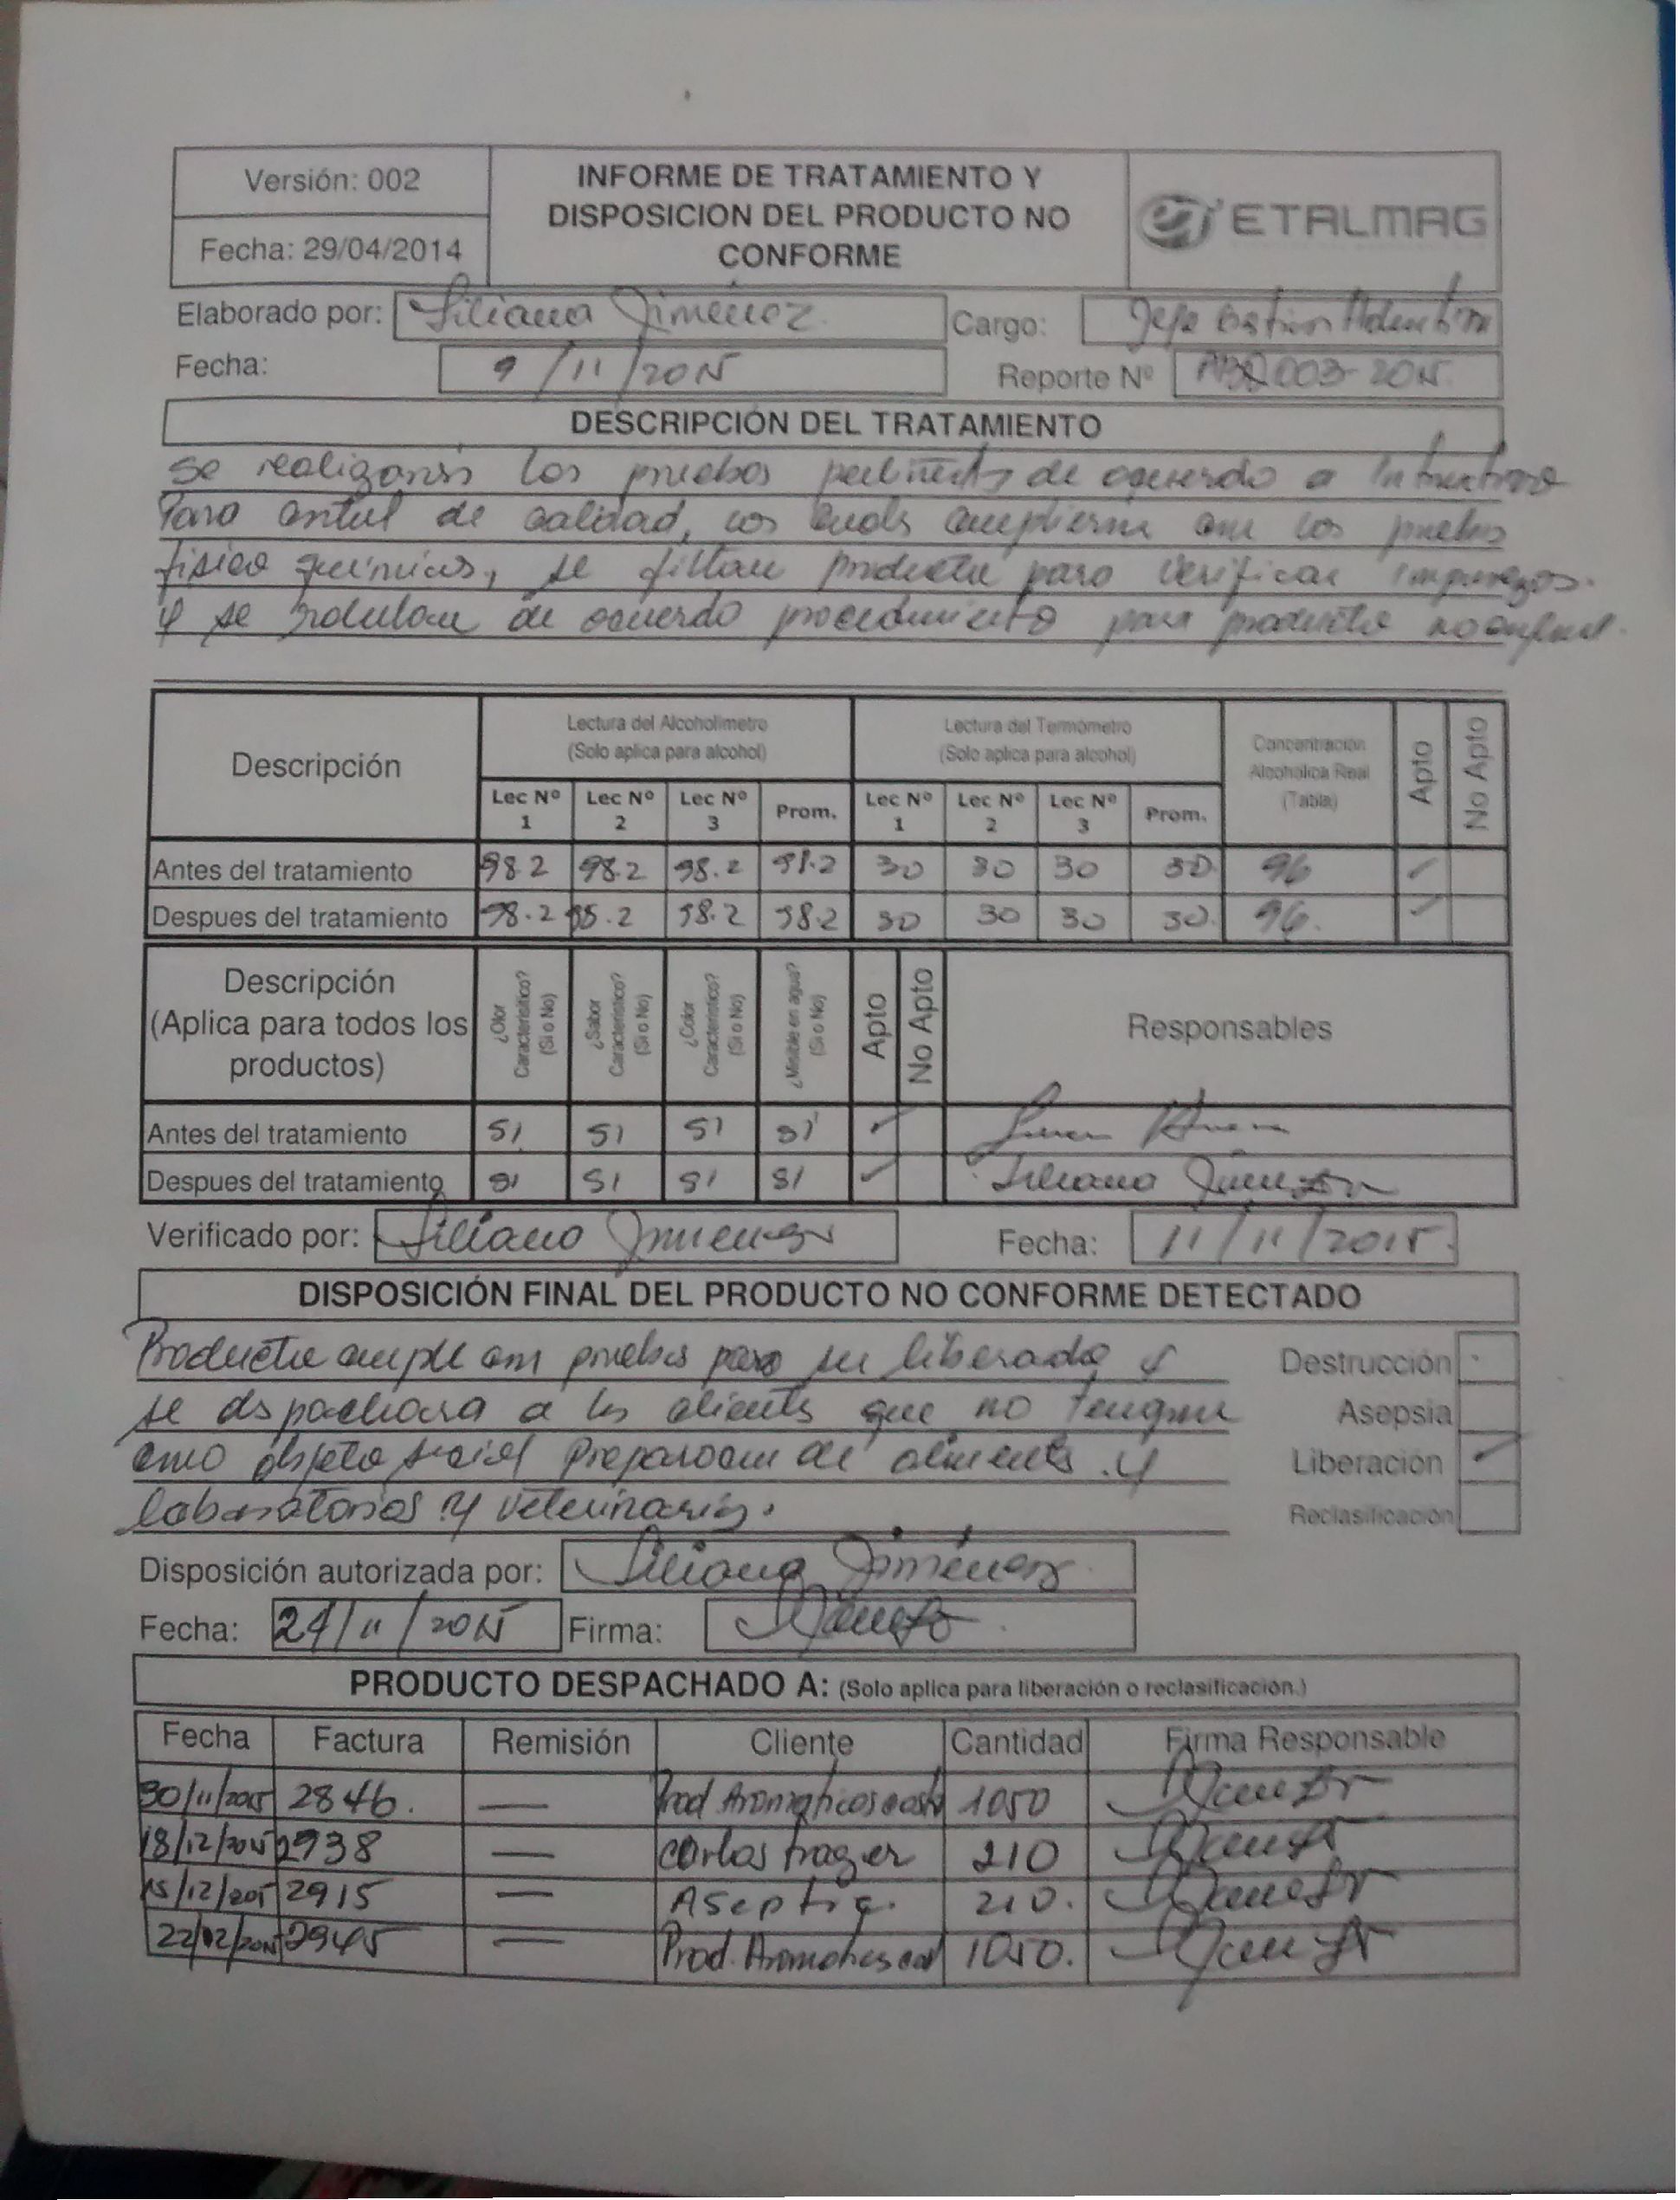 Versión: 002
Fecha: 29/04/2014
INFORME DE TRATAMIENTO Y
DISPOSICION DEL PRODUCTO NO
CONFORME
ETALMAG
Elaborado por: Liliana Jiménez Cargo: Jefe
Fecha: 9/11/2015 Reporte Nº 003-2015
DESCRIPCIÓN DEL TRATAMIENTO
se realizaron los pruebas de acuerdo a
Para de calidad, los con los pruebas
fisico quimicas, se producto para verificar impurezas.
y se de acuerdo procedimiento para producto
Descripción
Lectura del Alcoholímetro
(Solo aplica para alcohol)
Lectura del Termómetro
(Solo aplica para alcohol)
Concentración
Alcohólica Real
(Tabla)
Apto
No Apto
Lec Nº 1 Lec Nº 2 Lec Nº 3 Prom. Lec Nº 1 Lec Nº 2 Lec Nº 3 Prom.
Antes del tratamiento 98.2 98.2 98.2 98.2 30 30 30 30 96
Despues del tratamiento 98.2 98.2 98.2 30 30 30 30 96.
Descripción
(Aplica para todos los
productos)
¿Olor
Característico?
(Si o No)
¿Sabor
Característico?
(Si o No)
¿Color
Característico?
(Si o No)
¿Misible en agua?
(Si o No)
Apto
No Apto
Responsables
Antes del tratamiento SI SI SI SI
Despues del tratamiento SI SI SI SI Liliana
Verificado por: Liliana Jimenez Fecha: 11/11/2015.
DISPOSICIÓN FINAL DEL PRODUCTO NO CONFORME DETECTADO
Producto cumple con pruebas para su liberado y
se despachara a los clientes que no tengan
como objeto social preparacion de alimentos y
laboratorios y veterinarios.
Destrucción
Asepsia
Liberación
Reclasificación
Disposición autorizada por: Liliana Jiménez
Fecha: 24/11/2015 Firma:
PRODUCTO DESPACHADO A: (Solo aplica para liberación o reclasificación.)
Fecha Factura Remisión Cliente Cantidad Firma Responsable
30/11/2015 2846. — Prod Aromaticos 1050
18/12/2015 2938 — Carlos 210
15/12/2015 2915 — Aseptic. 210.
22/12/2015 2945 — Prod. 1050.